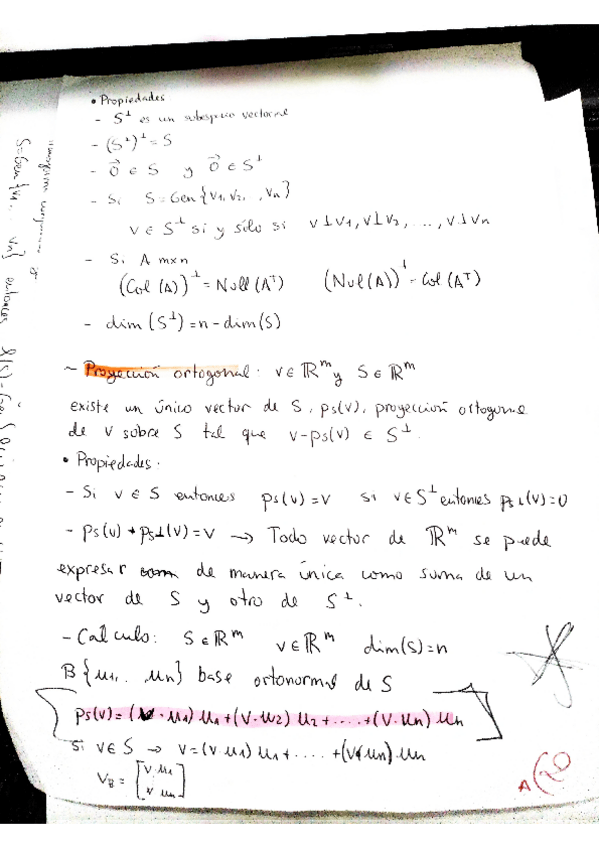 • Propiedades
- S⊥ es un subespacio vectorial
- (S⊥)⊥ = S
- 0⃗ ∈ S y 0⃗ ∈ S⊥
- Si S = Gen {v1, v2, ., vn}
v ∈ S⊥ si y sólo si v⊥v1, v⊥v2, ..., v⊥vn
- Si A mxn
(Col (A))⊥ = Null (AT) (Nul (A))⊥ = Col (AT)
- dim (S⊥) = n - dim(S)
~ Proyección ortogonal: v ∈ ℝm y S ∈ ℝm
existe un único vector de S, ps(v), proyección ortogonal
de v sobre S tal que v-ps(v) ∈ S⊥.
• Propiedades:
- Si v ∈ S entonces ps(v) = v si v ∈ S⊥ entonces ps⊥(v) = 0
- ps(v) + ps⊥(v) = v → Todo vector de ℝm se puede
expresar de manera única como suma de un
vector de S y otro de S⊥.
- Calculo: S ∈ ℝm v ∈ ℝm dim(S) = n
B {u1,.. un} base ortonormal de S
ps(v) = (v · u1) u1 + (v · u2) u2 + ..... + (v · un) un
si v ∈ S → v = (v · u1) u1 + .... + (v · un) un
vB = [v · u1
v un]
S = Gen {v1, ... vn} entonces